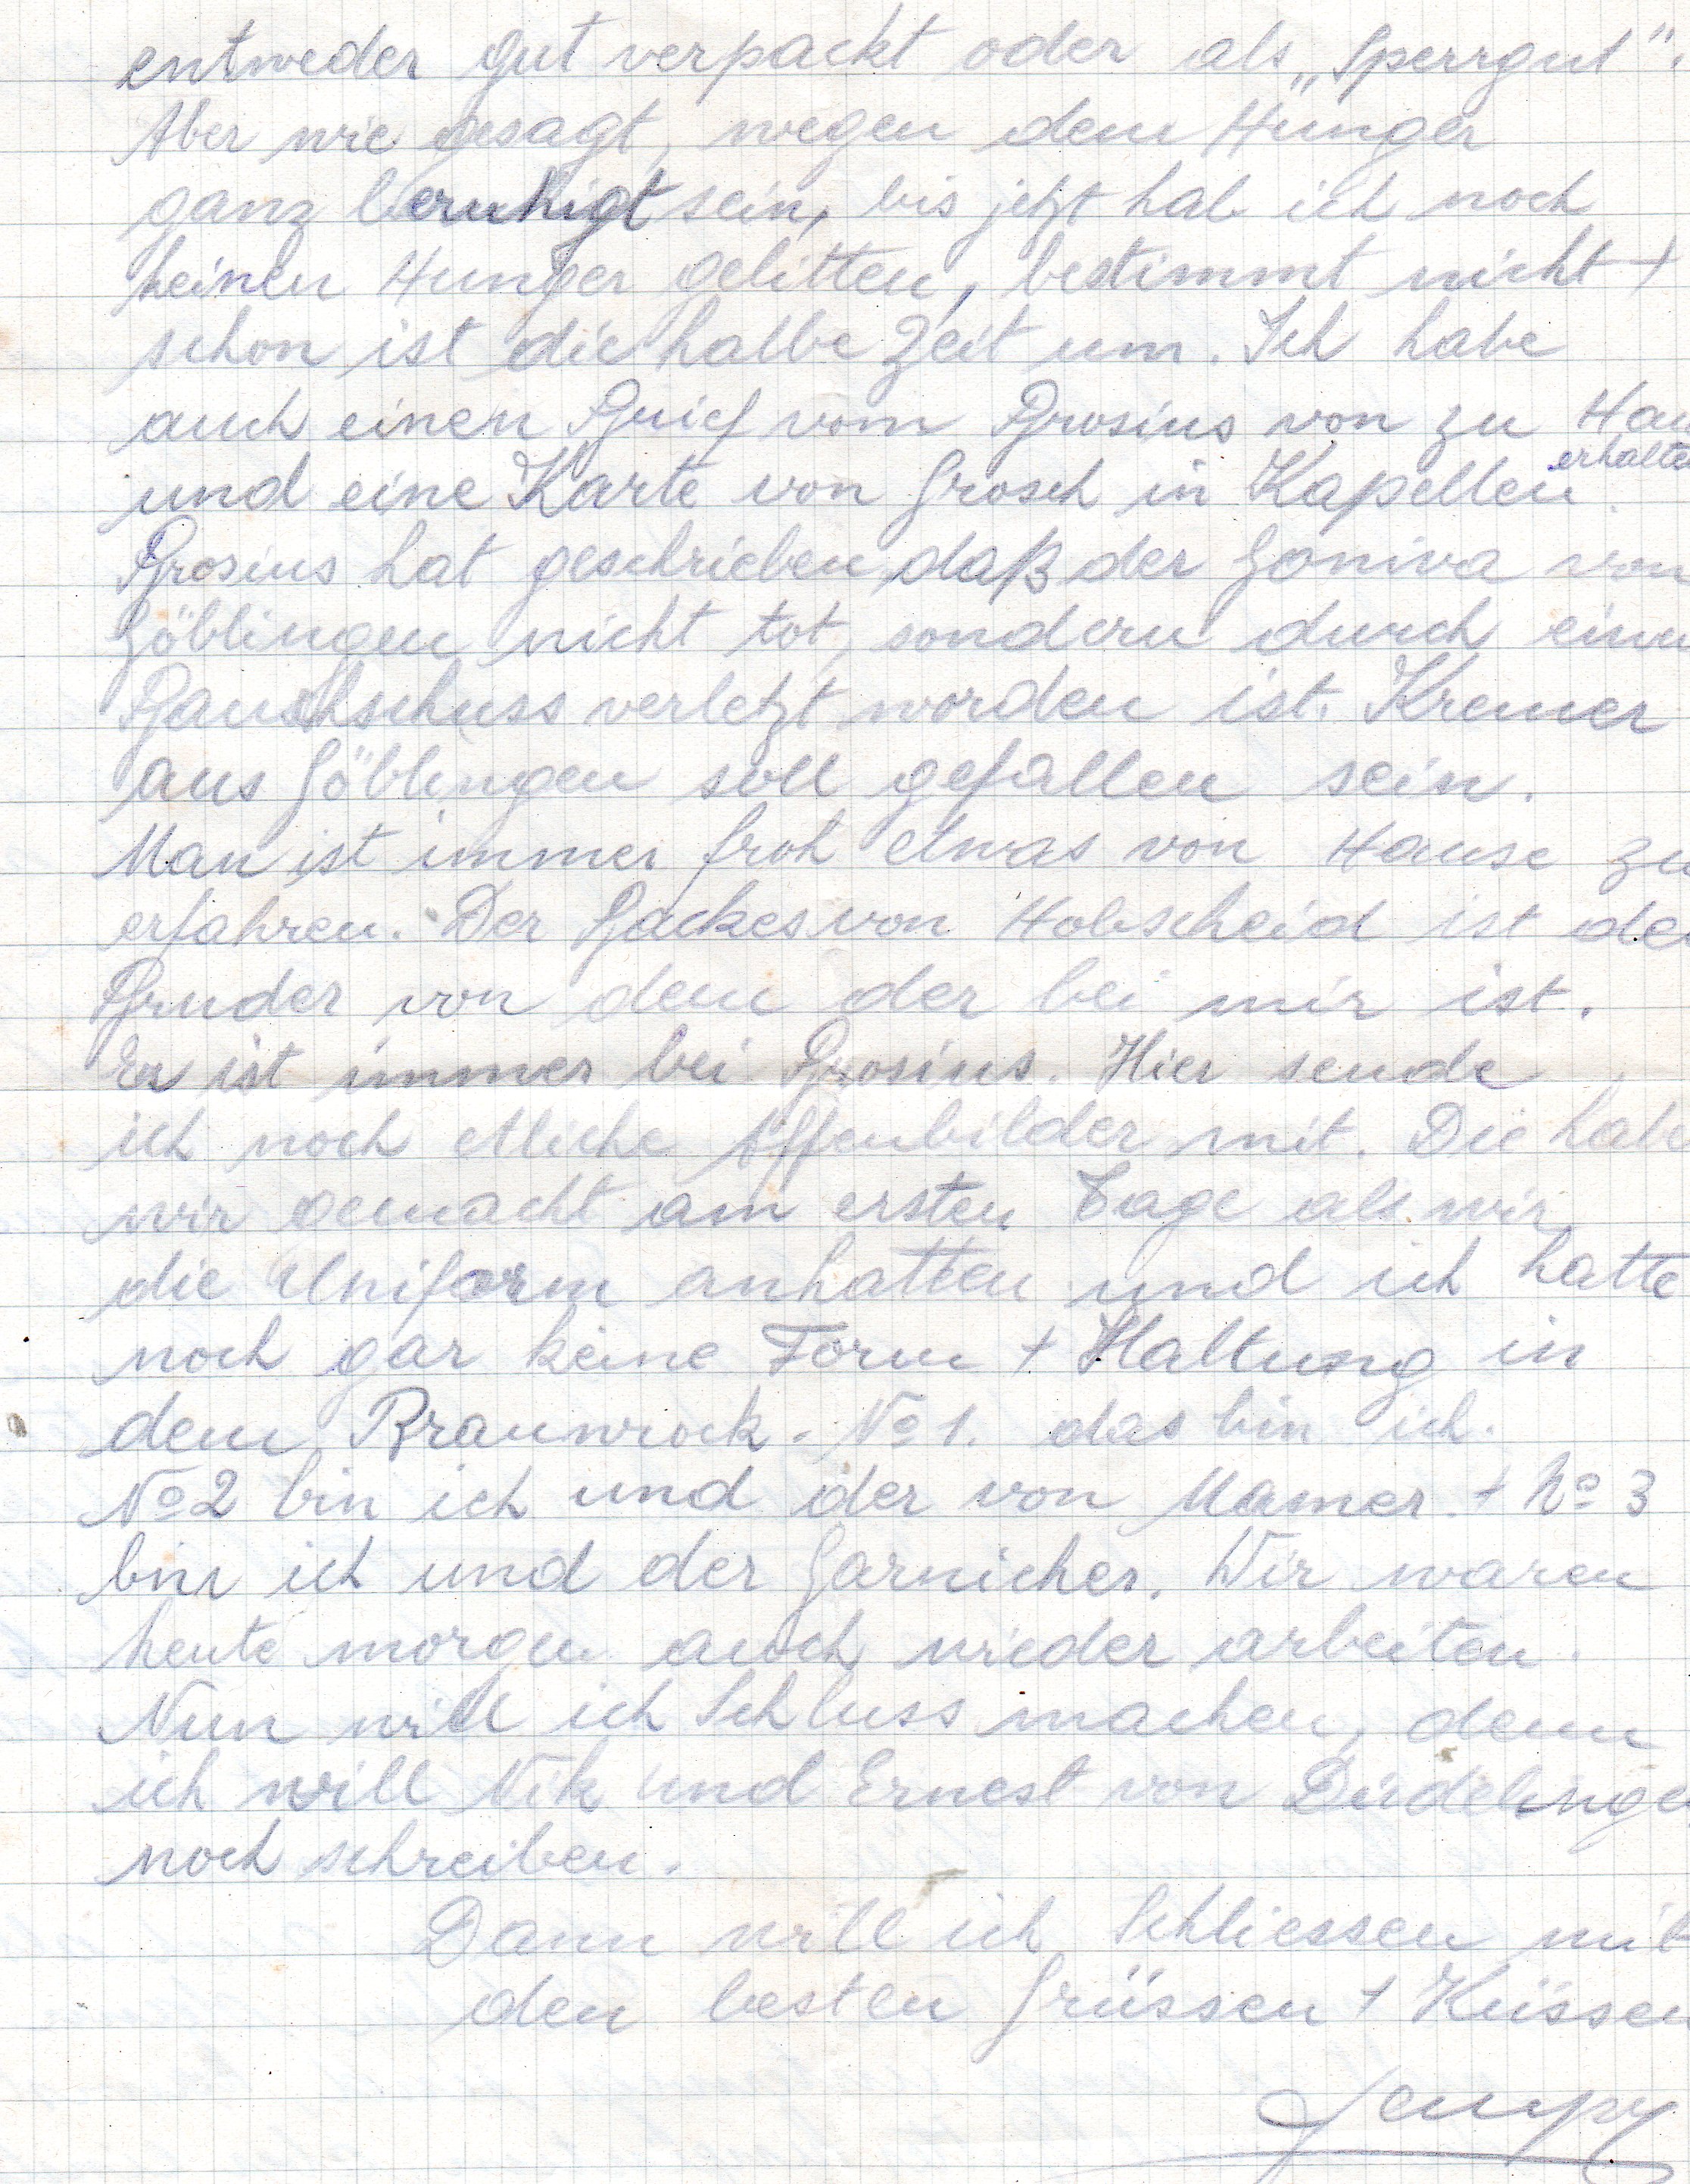 entweder gut verpackt oder als „Sperrgut".
Aber wie gesagt, wegen dem Hunger
ganz beruhigt sein, bis jetzt hab ich noch
keinen Hunger gelitten, bestimmt nicht +
schon ist die halbe Zeit um. Ich habe
auch einen Brief vom Brosius von zu Hau
erhalten
und eine Karte von Grosch in Kapellen.
Brosius hat geschrieben, daß der Goniva von
Göblingen nicht tot, sondern durch einen
Bauchschuss verletzt worden ist. Kremer
aus Göblingen soll gefallen sein.
Man ist immer froh etwas von Hause zu
erfahren. Der Backes von Hobscheid ist der
Bruder von dem der bei mir ist.
Er ist immer bei Brosius. Hier sende
ich noch etliche Affenbilder mit. Die habe
wir gemacht am ersten Tage als wir
die Uniform anhatten und ich hatte
noch gar keine Form + Haltung in
dem Braunrock. No 1. das bin ich.
No 2 bin ich und der von Mamer. + No 3
bin ich und der Garnicher. Wir waren
heute morgen auch wieder arbeiten.
Nun will ich Schluss machen, denn
ich will Nik und Ernest von Düdelingen
noch schreiben.
Dann will ich Schliessen mit
den besten Grüssen + Küssen
Jempy